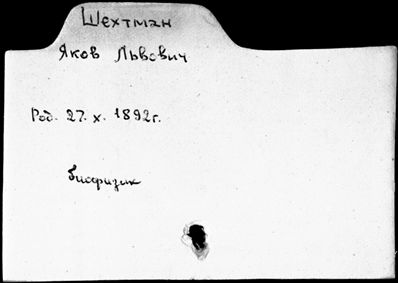 Шехтман
Яков Львович
Род. 27. x. 1892г.
биофизик